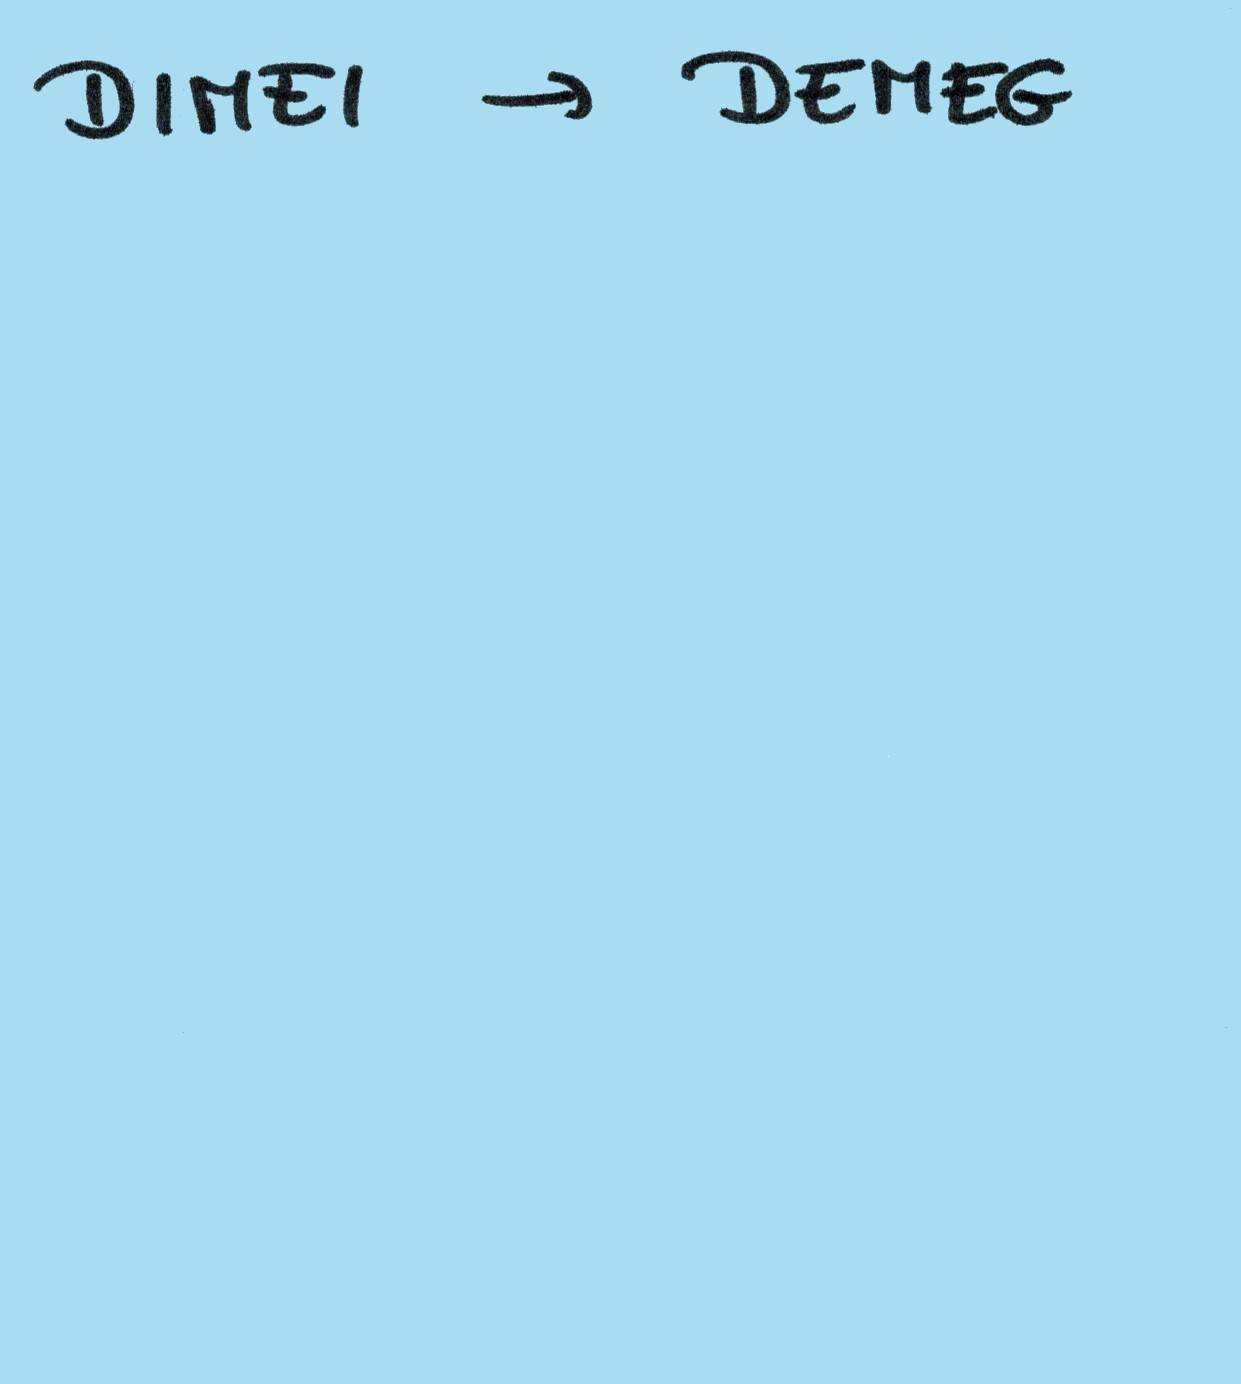 DIMEI → DEMEG